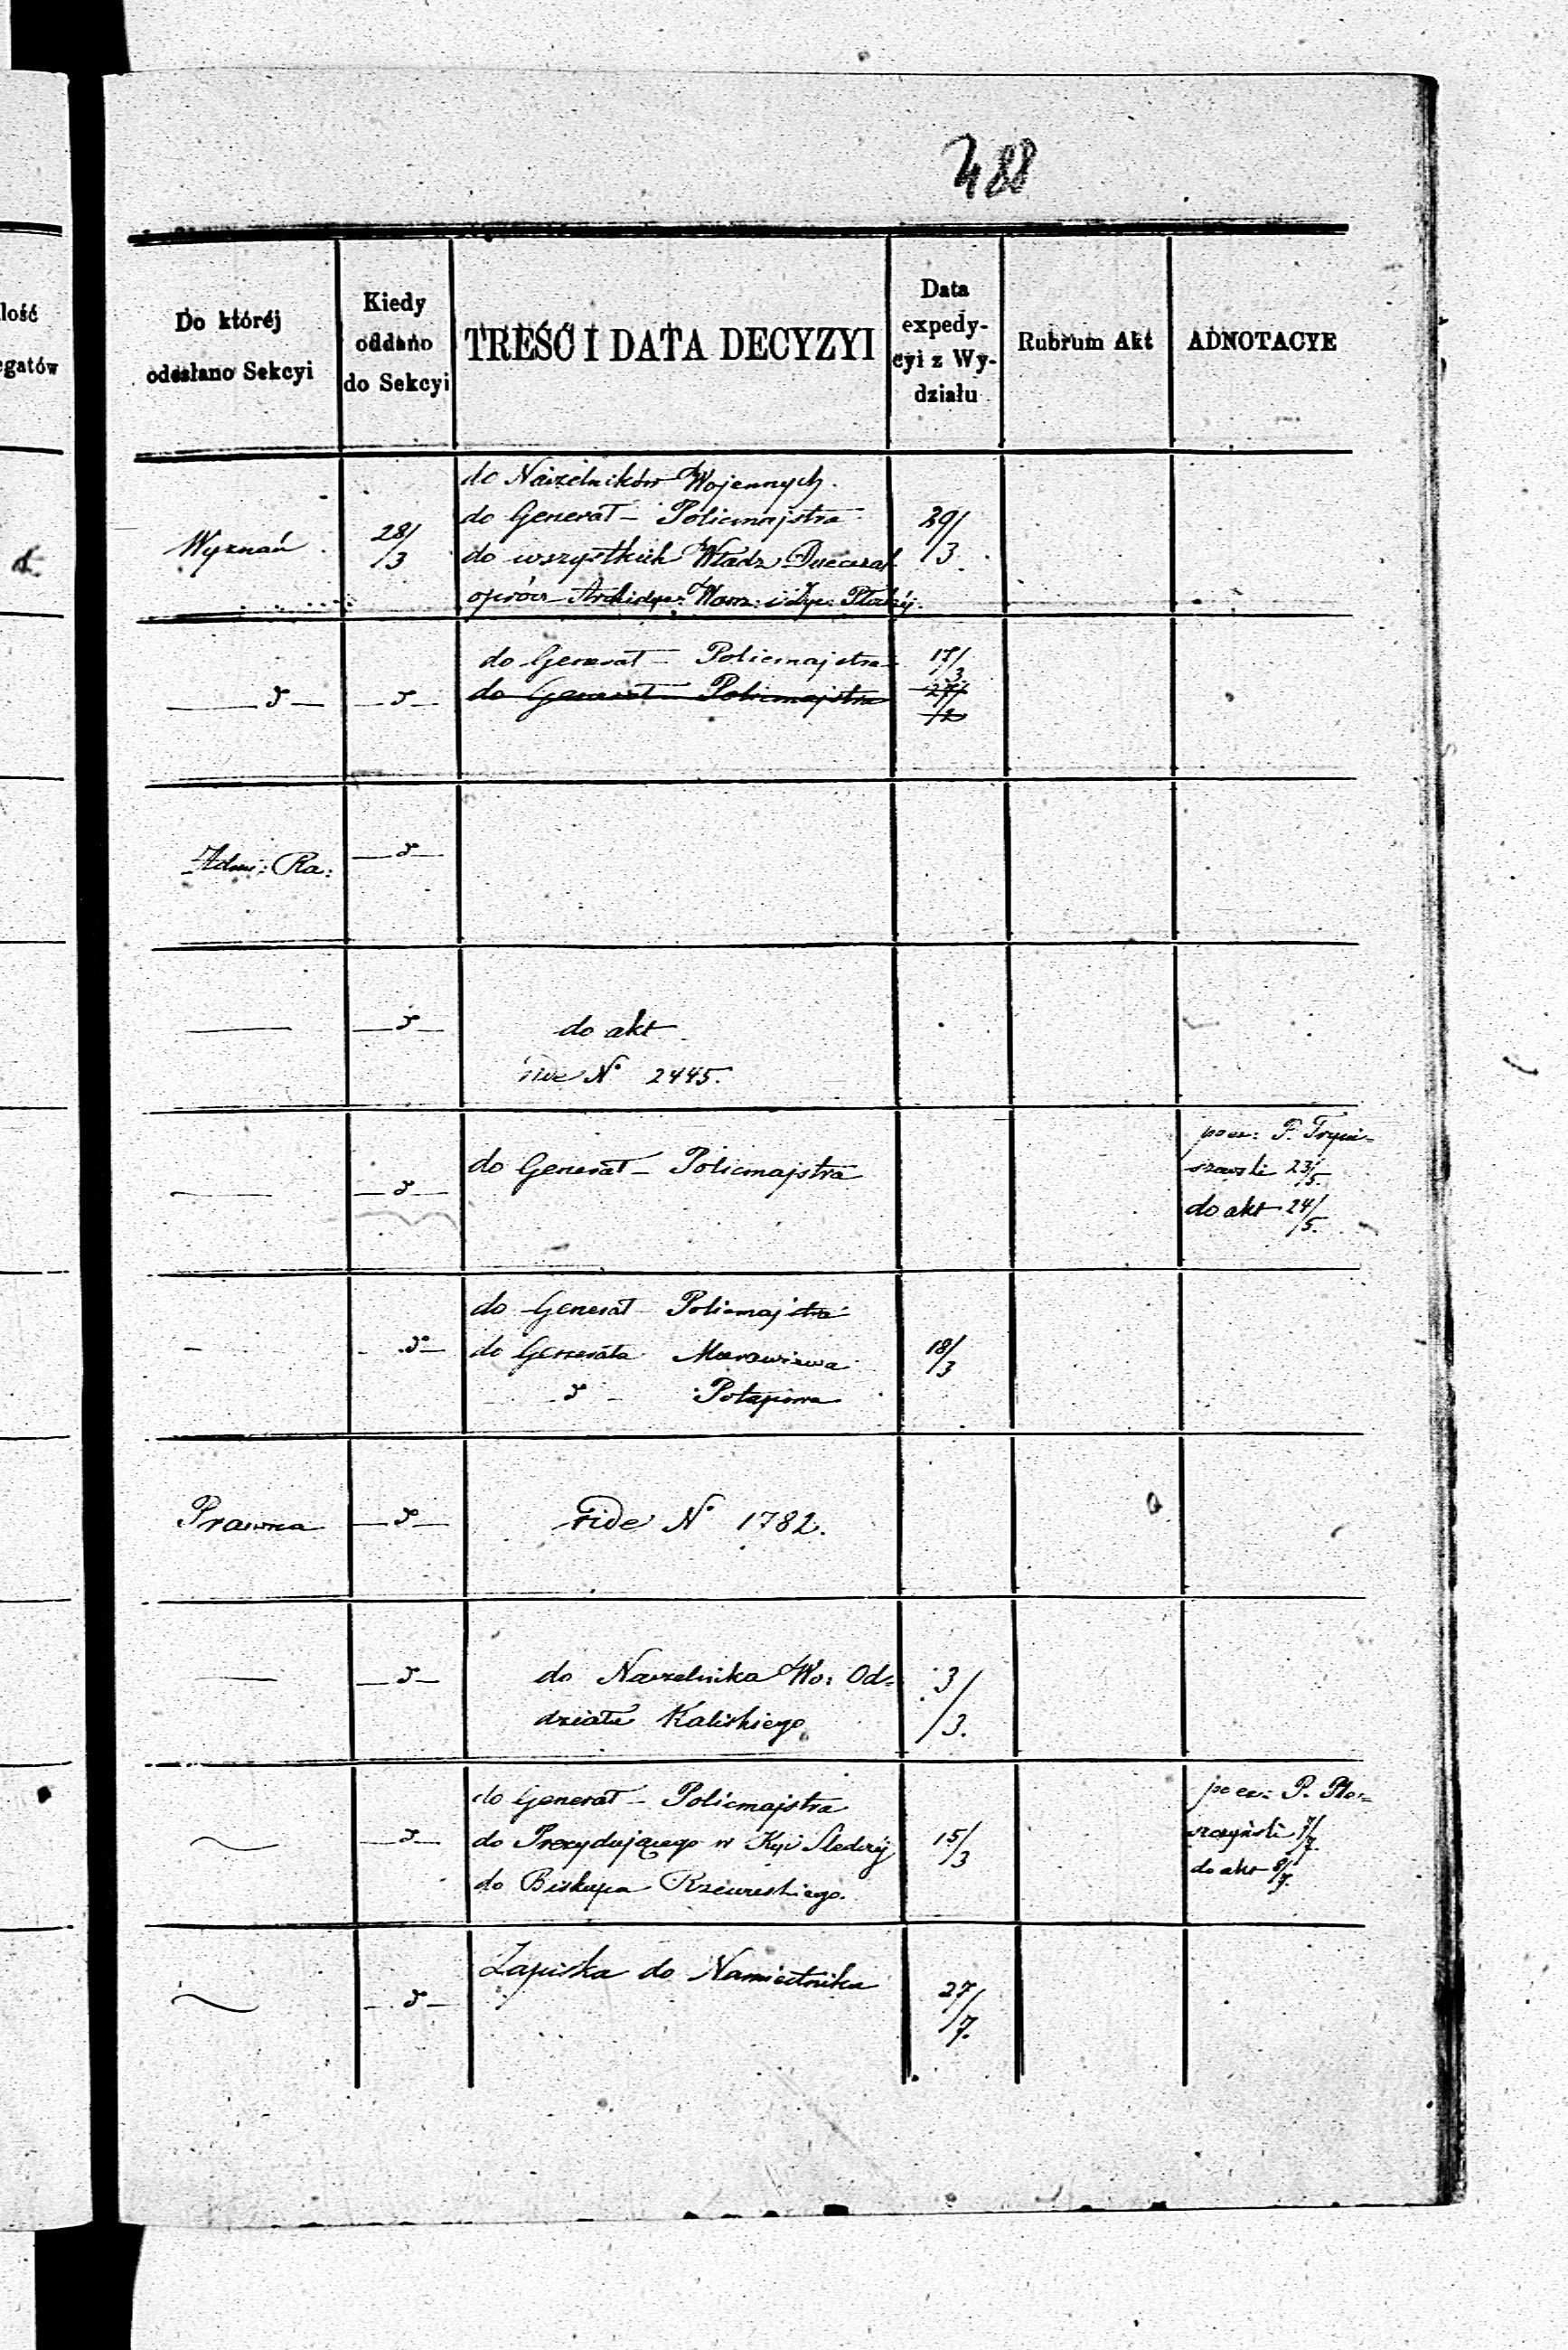 488
lość
egatów
Do któréj
odesłano Sekcyi
Kiedy
oddano
do Sekcyi
TREŚĆ I DATA DECYZYI
Data
expedy-
cyi z Wy-
działu
Rubrum Akt
ADNOTACYE
Wyznań
28/3
do Naczelników Wojennych.
do Generał - Policmajstra
do wszystkich Władz Duecezal
oprócz Archidye: Warsz: i Dye: Płockiéj.
29/3.
do Generał - Policmajstra
17/3
do Generał - Policmajstra
27/2
Adm: Ra:
do akt
Vide No 2445.
do Generał - Policmajstra
po ex: P.
23/5.
do akt 24/5.
do Generał Policmajstra
do Generała Murawiewa
Potapowa
18/3
Prawna
Vide No 1782.
do Naczelnika Wo: Od=
działu Kaliskiego
3/3.
do Generał - Policmajstra
do Prezydującego w Kyi Śledczéj
do Biskupa Rzewuskiego.
15/3
po ex: P.
do akt
Zapiska do Namiestnika
27/7.